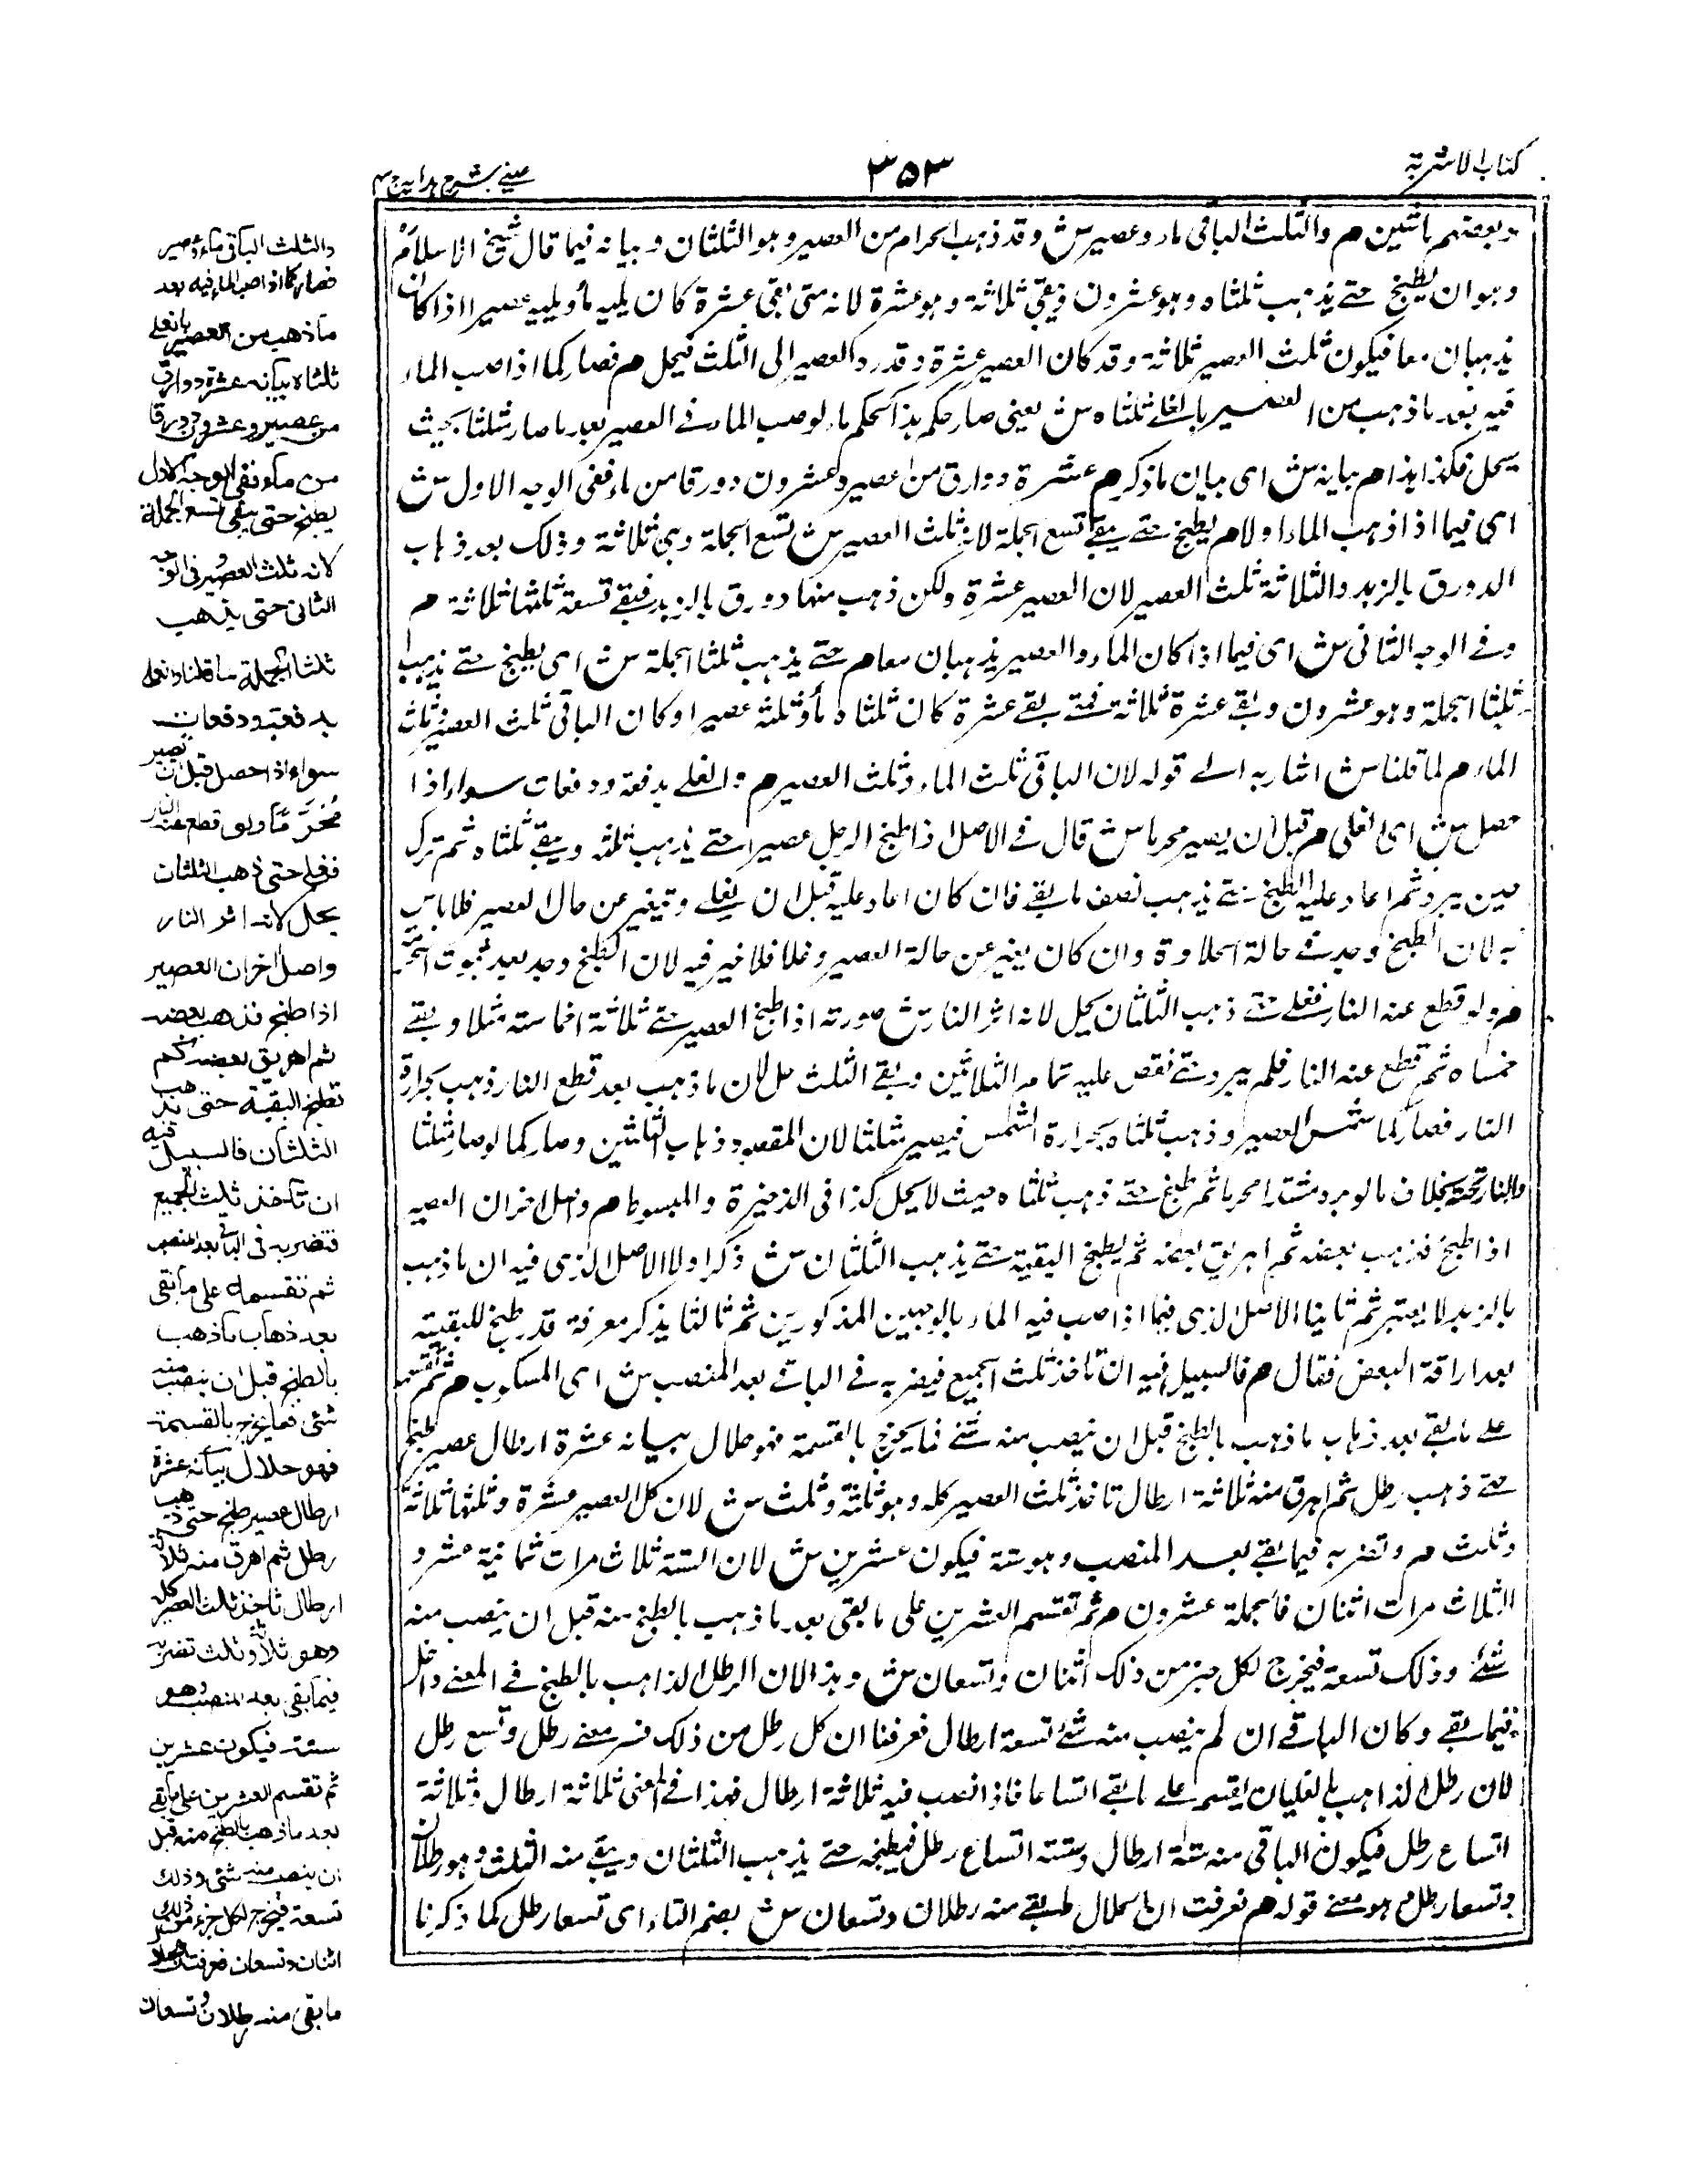 كتاب الاشربة
٣٥٣
عيني شرح هداية ج ٤
وبعضهم باثنين م والثلث الباقي ماء وعصير ش وقد ذهب الحرام من العصير وهو الثلثان وبيانه فيما قال شيخ الاسلام
وهو ان يطبخ حتى يذهب ثلثاه وهو عشرون ويبقى ثلاثة وهو عشرة لانه متى بقي عشرة كان يليه ماء ويليه عصيرا اذا كان
يذهبان معا فيكون ثلث العصير ثلاثة وقد كان العصير عشرة وقد رد العصير الى الثلث فيحل م فصار كما اذا صب الماء
فيه بعد ما ذهب من العصير بالغلي ثلثاه ش يعني صار حكم هذا كحكم ما لو صب الماء في العصير بعد ما صار مثلثا بحيث
يحل فكذا هذا م بيانه ش اى بيان ما ذكر م عشرة دوارق من عصير وعشرون دورقا من ماء ففى الوجه الاول ش
اى فيما اذا ذهب الماء اولا م يطبخ حتى يبقى تسع الجملة لانه ثلث العصير ش تسع الجملة وهي ثلاثة وذلك بعد ذهاب
الدورق بالزبد والثلاثة ثلث العصير لان العصير عشرة ولكن ذهب منها دورق بالزبد فبقى تسعة ثلثها ثلاثة م
وفي الوجه الثانى ش اى فيما اذا كان الماء والعصير يذهبان معا م حتى يذهب ثلثا الجملة ش اى يطبخ حتى يذهب
ثلثا الجملة وهو عشرون ويبقى عشرة ثلاثة فمتى بقى عشرة كان ثلثاه ماء وثلثه عصيرا وكان الباقي ثلث العصير وثلث
الماء م لما قلنا ش اشار به الى قوله لان الباقي ثلث الماء وثلث العصير م والغلي بدفعة ودفعات سواء اذا
حصل ش اى الغلى م قبل ان يصير محرما ش قال فى الاصل اذا طبخ الرجل عصيرا حتى يذهب ثلثه ويبقى ثلثاه ثم ترك
حين يبرد ثم اعاد عليه الطبخ حتى يذهب نصف ما بقى فان كان اعاد عليه قبل ان يغلي وتغير عن حال العصير فلا باس
به لان الطبخ وجد فى حالة الحلاوة وان كان يغير عن حالة العصير وغلا فلا خير فيه لان الطبخ وجد بعد ثبوت الحرمة
م ولو قطع عنه النار فغلى حتى ذهب الثلثان يحل لانه اثر النار ش صورته اذا طبخ العصير حتى ثلاثة اخماسه مثلا وبقى
خمساه ثم قطع عنه النار فلم يبرد حتى نقص عليه تمام الثلاثين وبقى الثلث حل لان ما ذهب بعد قطع النار ذهب بحرارة
النار فصار كما شمس العصير وذهب ثلثاه بحرارة الشمس فيصير مثلثا لان المقصود ذهاب الثلثين وصار كما لو صار مثلثا
والنار تحته بخلاف ما لو برد مشتدا محرما ثم طبخ حتى ذهب ثلثاه حيث لا يحل كذا فى الذخيرة والمبسوط م واصل اخر ان العصير
اذا طبخ فذهب بعضه ثم اهريق بعضه ثم يطبخ البقية حتى يذهب الثلثان ش ذكر اولا الاصل الذى فيه ان ما ذهب
بالزبد لا يعتبر ثم ثانيا الاصل الذى فيما اذا صب فيه الماء بالوجهين المذكورين ثم ثالثا يذكر معرفة قدر طبخ البقية
بعد اراقة البعض فقال م فالسبيل فيه ان تاخذ ثلث الجميع فيضربه فى الباقى بعد المنصب ش اى المسكوب م ثم تقسمه
على ما بقى بعد ذهاب ما ذهب بالطبخ قبل ان ينصب منه شئ فما يخرج بالقسمة فهو حلال بيانه عشرة ارطال عصير طبخ
حتى ذهب رطل ثم اهرق منه ثلاثة ارطال تاخذ ثلث العصير كله وهو ثلثة وثلث ش لان كل العصير عشرة وثلثها ثلاثة
وثلث م وتضربه فيما بقى بعد المنصب وهو ستة فيكون عشرين ش لان الستة ثلاث مرات ثمانية عشر و
الثلاث مرات اثنان فالجملة عشرون م ثم تقسم العشرين على ما بقى بعد ما ذهب بالطبخ منه قبل ان ينصب منه
شئ وذلك تسعة فيخرج لكل جزء من ذلك اثنان وتسعان ش وهذا لان الرطل الذاهب بالطبخ فى المعنى داخل
فيما بقى وكان الباقى ان لم ينصب منه شئ تسعة ارطال فعرفنا ان كل رطل من ذلك فسر معنى رطل وتسع رطل
لان رطل الذاهب بالغليان يقسم على ما بقى اتساعا فاذا انصب فيه ثلاثة ارطال فهذا فى المعنى ثلاثة ارطال وثلاثة
اتساع رطل فيكون الباقى منه ستة ارطال وستة اتساع رطل فيطبخه حتى يذهب الثلثان ويبقى منه الثلث وهو رطلان
وتسعا رطل هو معنى قوله م فعرفت ان الحلال ما بقى منه رطلان وتسعان ش بضم التاء اى تسعا رطل كما ذكرنا
والثلث الباقى ماء وعصير
فصار كما اذا صب الماء فيه بعد
ما ذهب من العصير بالغلى
ثلثاه بيانه عشرة دوارق
من عصير وعشرون دورقا
من ماء ففى الوجه الاول
يطبخ حتى يبقى تسع الجملة
لانه ثلث العصير وفى الوجه
الثانى حتى يذهب
ثلثا الجملة لما قلنا والغلى
بدفعة ودفعات
سواء اذا حصل قبل ان يصير
محرما ولو قطع عنه النار
فغلى حتى ذهب الثلثان
يحل لانه اثر النار
واصل اخر ان العصير
اذا طبخ فذهب بعضه
ثم اهريق بعضه كم
تطبخ البقية حتى يذهب
الثلثان فالسبيل فيه
ان تاخذ ثلث الجميع
فتضربه فى الباقى بعد المنصب
ثم تقسمه على ما بقى
بعد ذهاب ما ذهب
بالطبخ قبل ان ينصب منه
شئ فما يخرج بالقسمة
فهو حلال بيانه عشرة
ارطال عصير طبخ حتى ذهب
رطل ثم اهرق منه ثلاثة
ارطال تاخذ ثلث العصير كله
وهو ثلاثة وثلث تضربه
فيما بقى بعد المنصب وهو
ستة فيكون عشرين
ثم تقسم العشرين على ما بقى
بعد ما ذهب بالطبخ منه قبل
ان ينصب منه شئ وذلك
تسعة فيخرج لكل جزء من ذلك
اثنان وتسعان فعرفت ان الحلال
ما بقى منه رطلان وتسعان